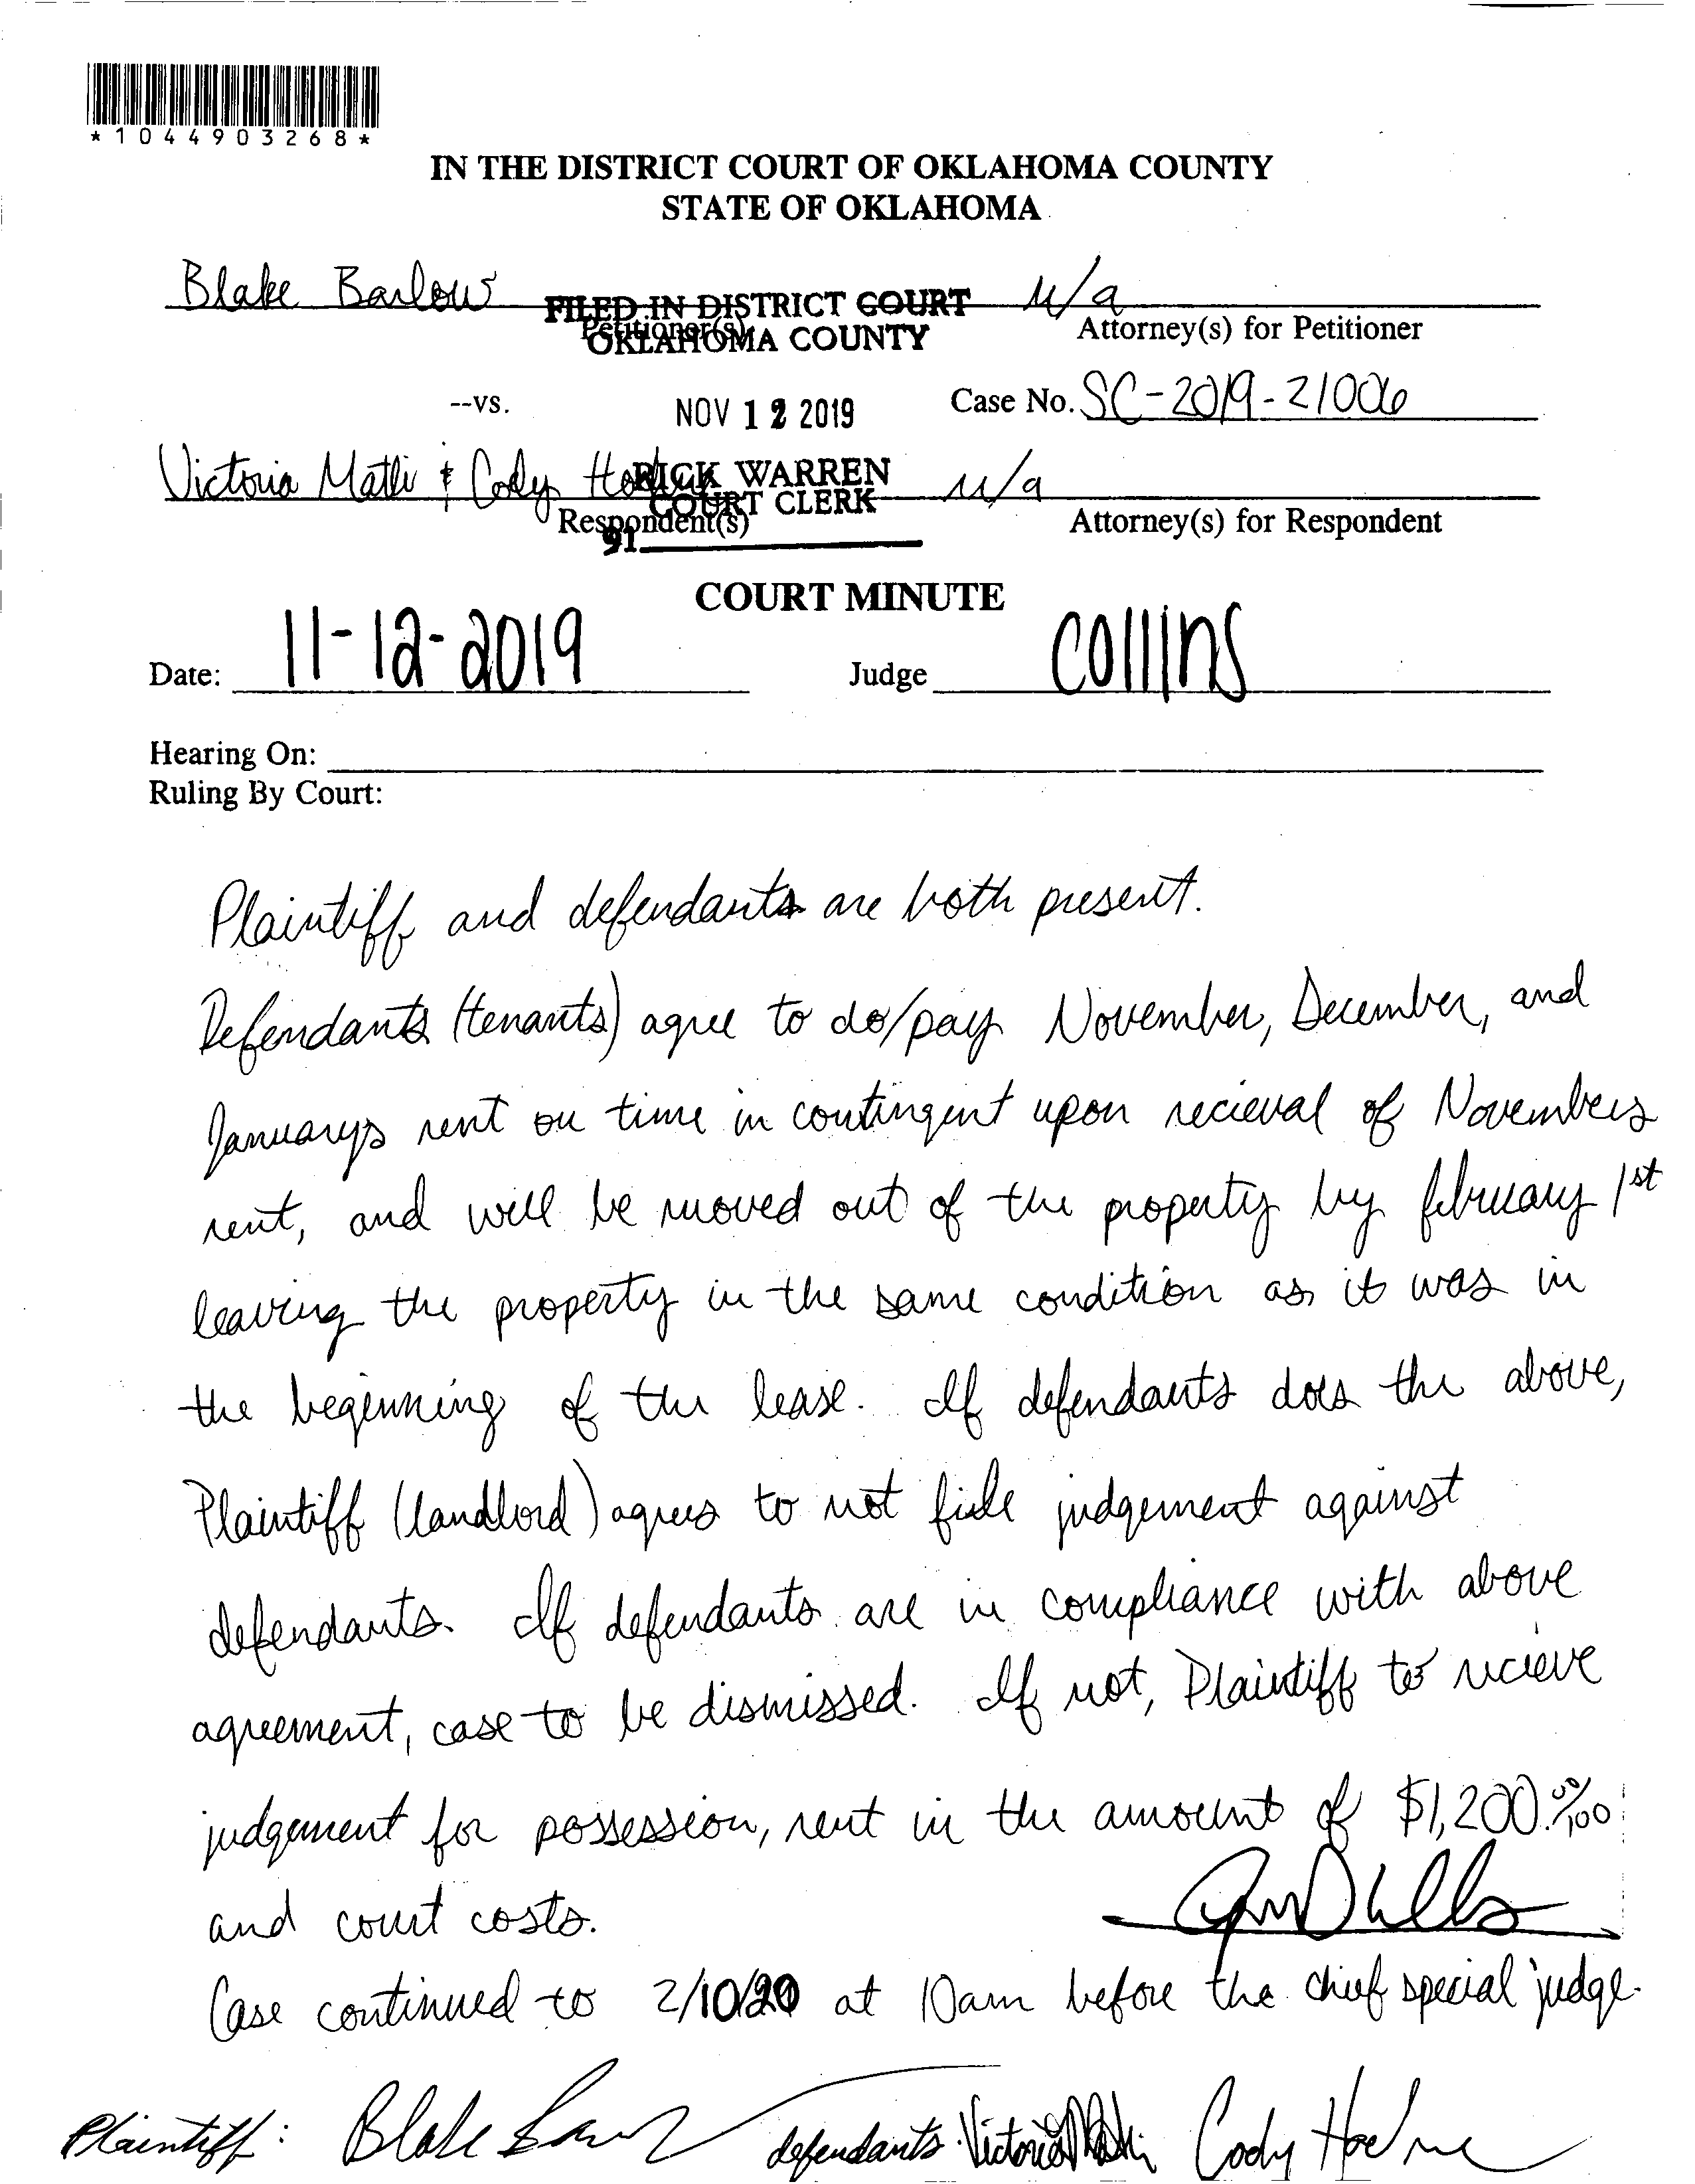 *1044903268*
IN THE DISTRICT COURT OF OKLAHOMA COUNTY
STATE OF OKLAHOMA
Blake Barlow
N/a
FILED IN DISTRICT COURT
OKLAHOMA COUNTY
Petitioner(s)
Attorney(s) for Petitioner
--vs.
NOV 12 2019
Case No. SC-2019-21006
Victoria Matli & Cody
RICK WARREN
COURT CLERK
N/a
Respondent(s)
Attorney(s) for Respondent
91
COURT MINUTE
Date: 11-12-2019
Judge Collins
Hearing On:
Ruling By Court:
Plaintiff and defendants are both present.
Defendants (tenants) agree to do/pay November, December, and
Januarys rent on time in contingent upon recieval of Novembers
rent, and will be moved out of the property by february 1st
leaving the property in the same condition as it was in
the beginning of the lease. If defendants does the above,
Plaintiff (landlord) agrees to not file judgement against
defendants. If defendants are in compliance with above
agreement, case to be dismissed. If not, Plaintiff to recieve
judgement for possession, rent in the amount of $1,200.00/100
and court costs.
Case continued to 2/10/20 at 10am before the chief special judge.
Plaintiff: Blake
defendants: Victoria Matli Cody